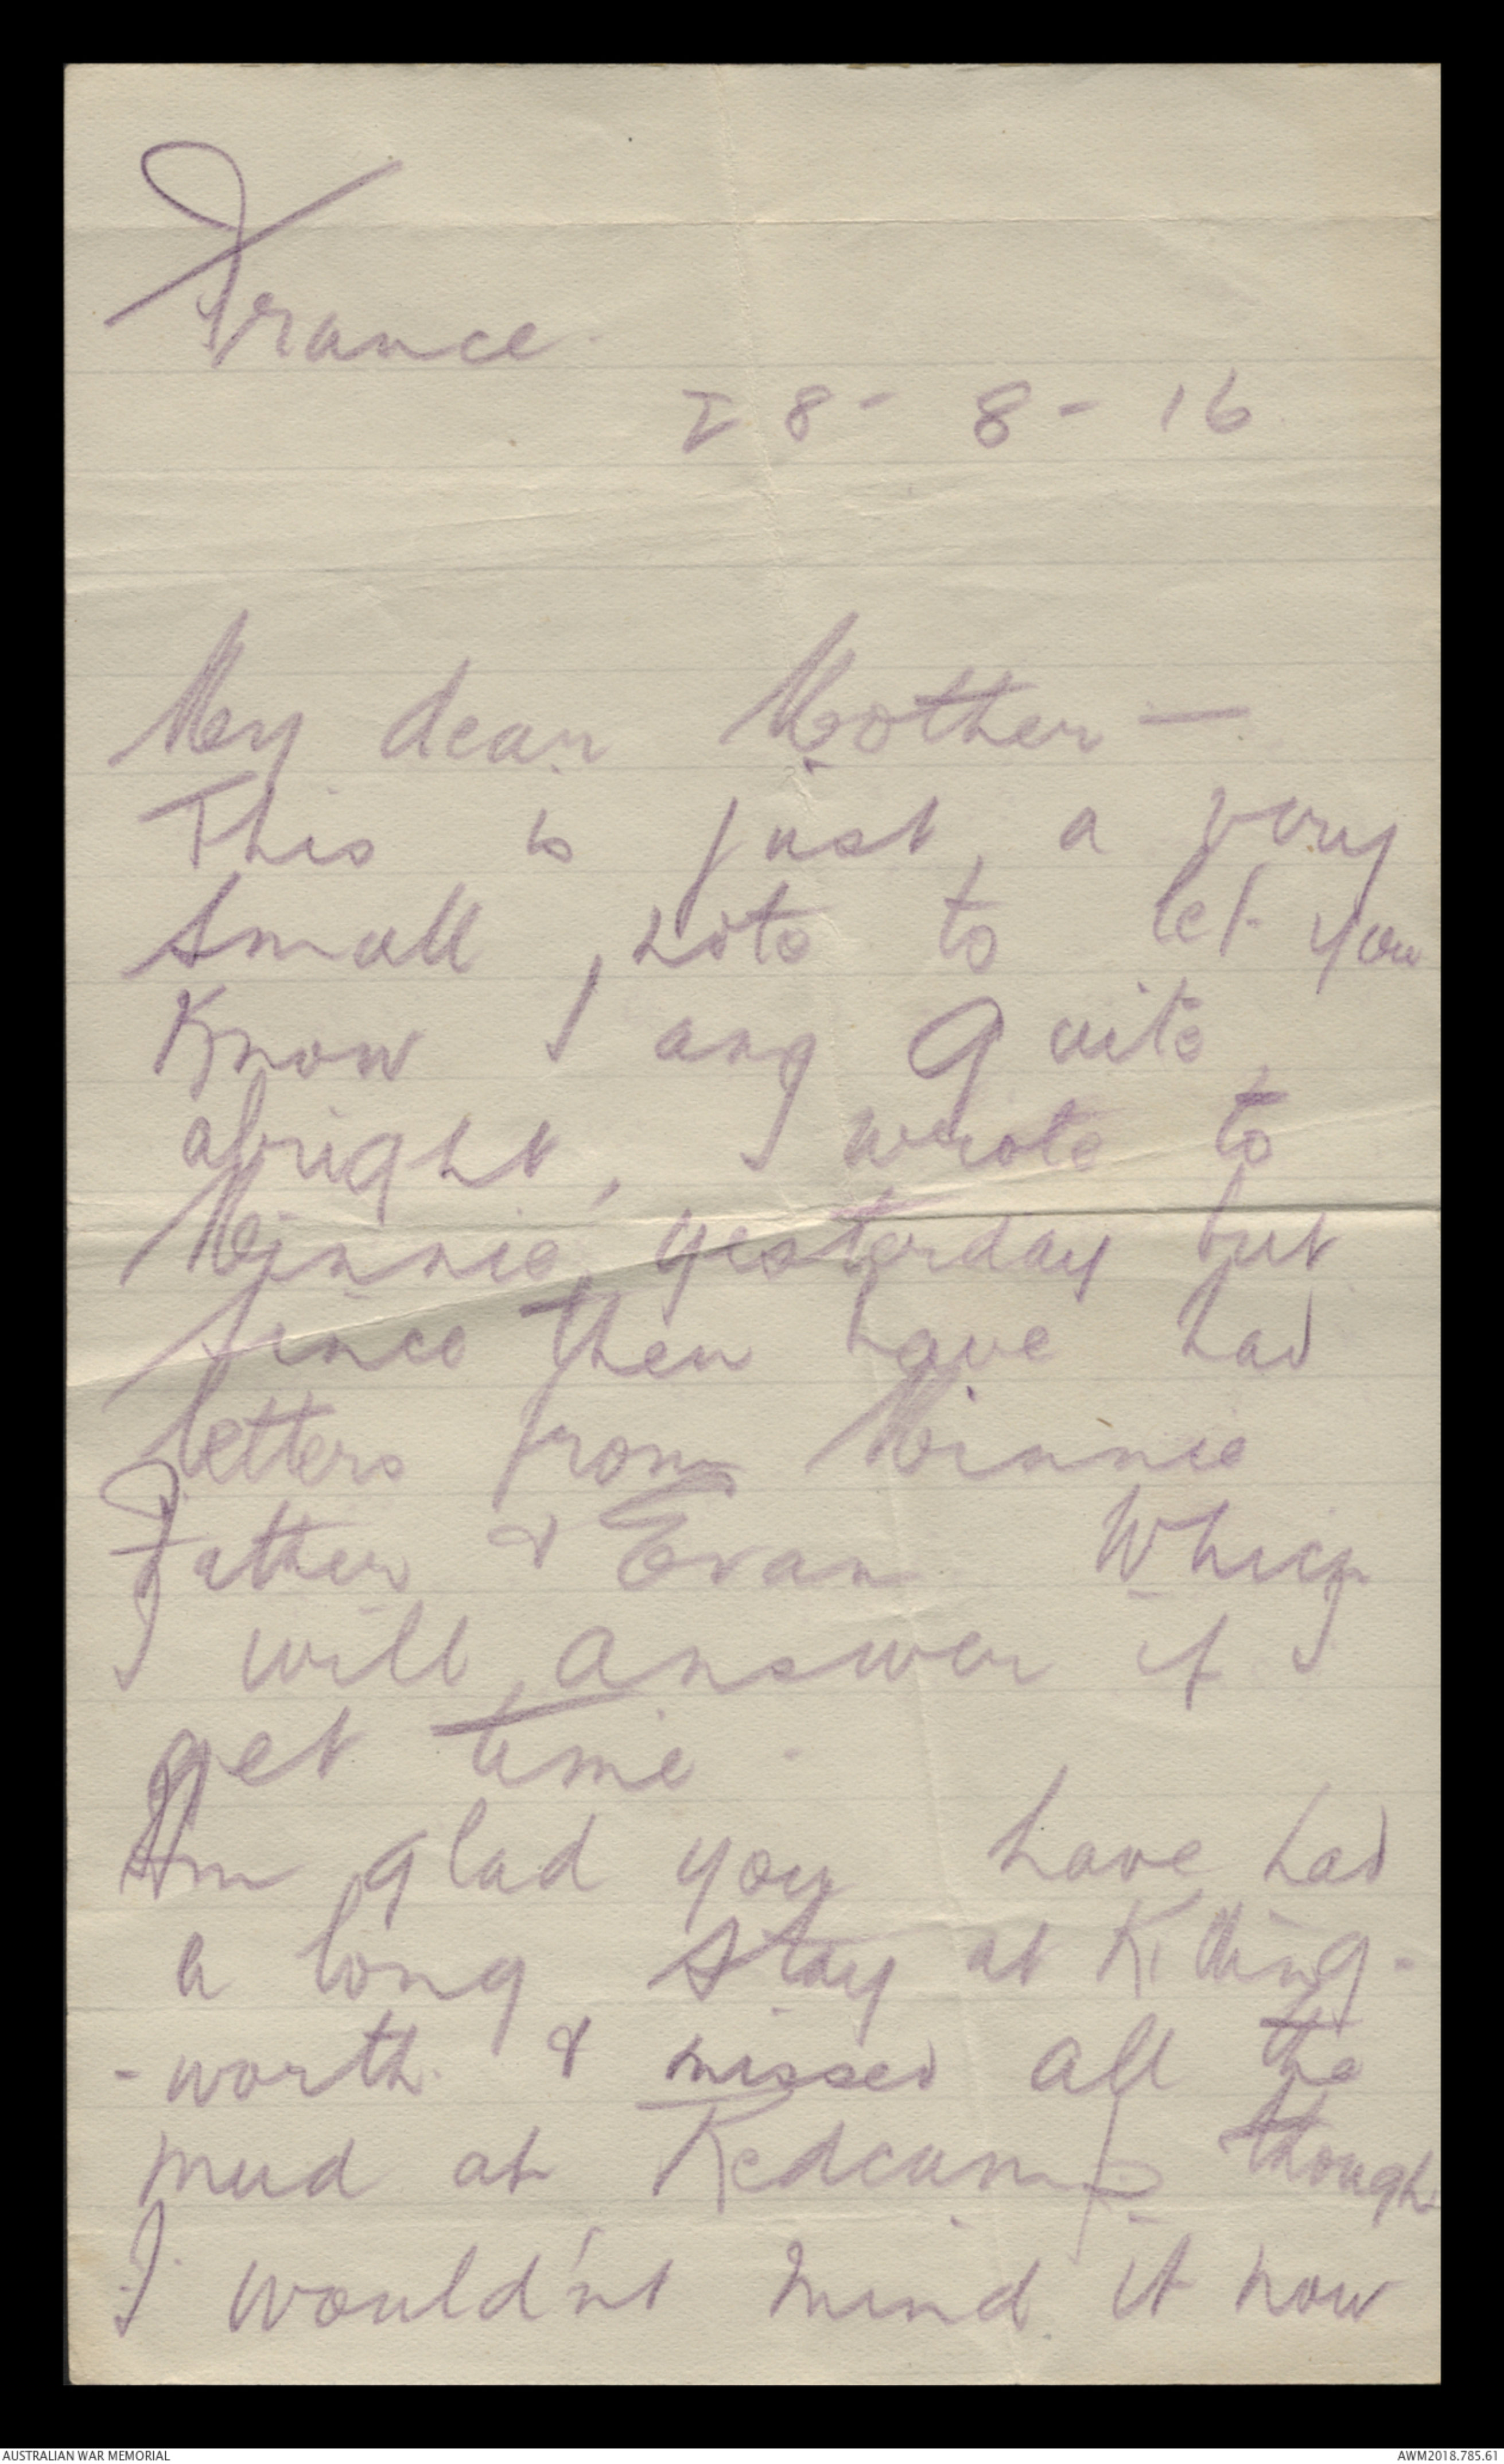 France.
28-8-16
My dear Mother —
This is just a very
small note to let you
know I am quite
alright, I wrote to
Minnie yesterday but
since then have had
letters from Minnie
Father & Evan Which
I will answer if I
get time.
Am glad you have had
a long stay at Killing-
-worth & missed all the
mud at Redcamp though
I would'nt mind it now
AUSTRALIAN WAR MEMORIAL
AWM2018.785.61